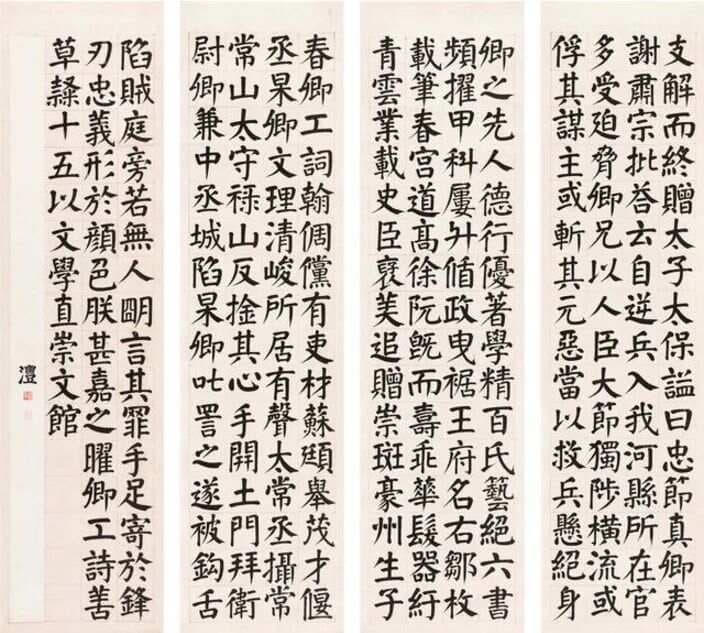 支解而終贈太子太保謚曰忠節真卿表
謝肅宗批荅云自逆兵入我河縣所在官
多受迫脅卿兄以人臣大節獨陟橫流或
俘其謀主或斬其元惡當以救兵懸絕身
卿之先人德行優著學精百氏藝絕六書
頻擢甲科屢升循政曳裾王府名右鄒枚
載筆春宮道高徐阮既而壽乖華髮器紆
青雲業載史臣襃美追贈崇班豪州生子
春卿工詞翰倜儻有吏材蘇頲舉茂才偃
丞杲卿文理清峻所居有聲太常丞攝常
常山太守祿山反捦其心手開土門拜衛
尉卿兼中丞城陷杲卿叱詈之遂被鈎舌
陷賊庭旁若無人朙言其罪手足寄於鋒
刃忠義形於顏色朕甚嘉之曜卿工詩善
草隸十五以文學直崇文館
澧